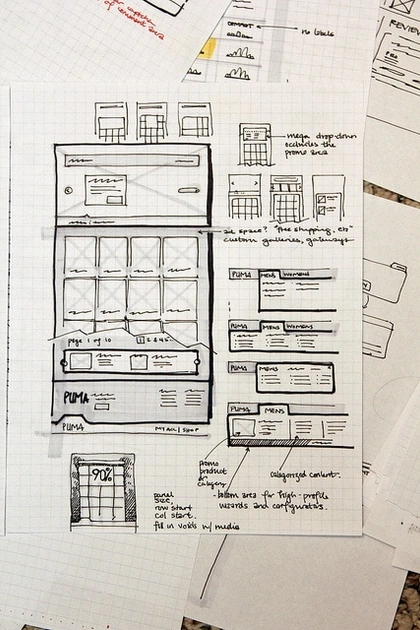 of comment area
no labels
REVIEW
mega drop-down
occludes the
promo area
ad space? "free shipping, etc"
custom galleries, gateways
PUMA MENS WOMENS
page 1 of 10
PUMA MENS WOMENS
PUMA MENS
PUMA
PUMA MENS
PUMA
MY ACC | SHOP
90%
promo
product
or
category
categorized content.
- bottom area for high-profile
wizards and configurators.
panel
size,
row start
col start.
fill in voids w/ media